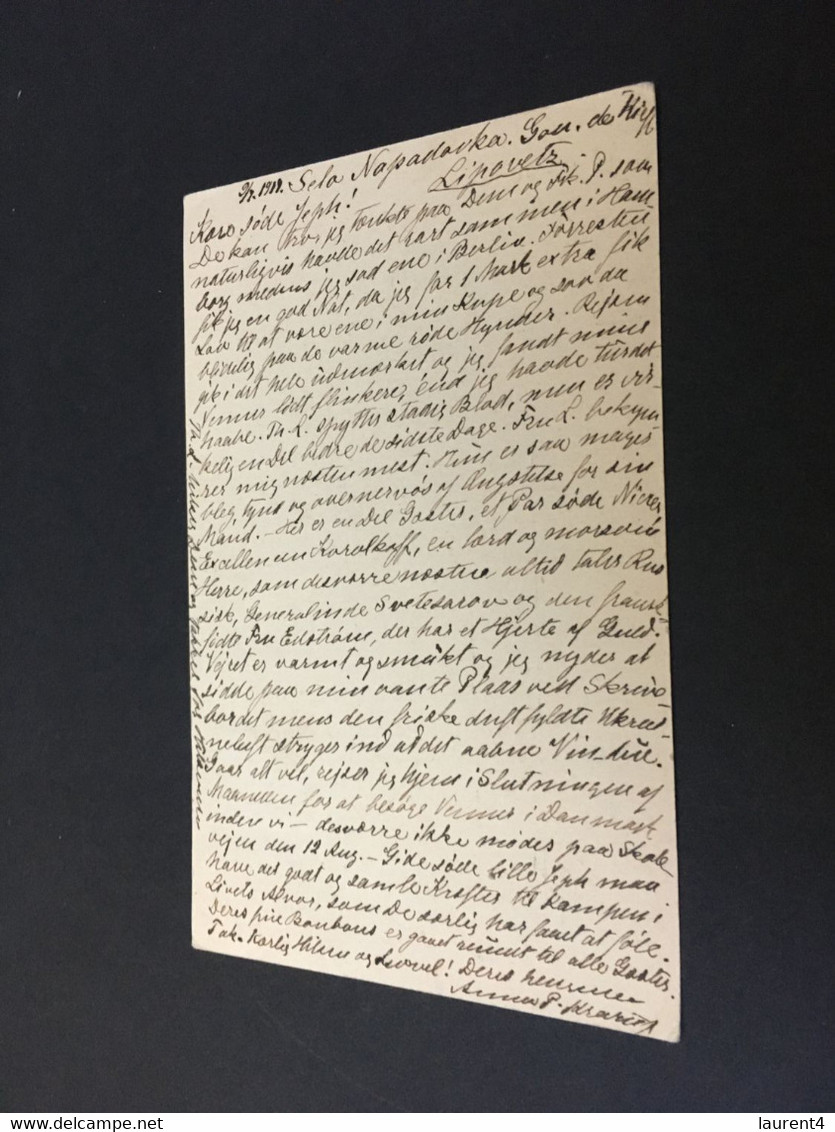 9/7.1914. Selo Napadovka. Gou. de Kieff
Lipovetz
Kære søde Jeph!
De kan tro jeg tænkte paa Dem og Frk. P. som
naturligvis havde det rart sammen i Ham-
borg medens jeg sad ene i Berlin. Forresten
fik jeg en god Nat, da jeg for 1 Mark extra fik
Lov til at være ene i min Kupe og saa da
paa de varme røde Hynder. Rejsen
gik i det hele udmærket og jeg fandt mine
Venner lidt flinkere, end jeg havde turdet
haabe. Th. L. spytter stadig Blod, men er vir-
kelig en Del bedre de sidste Dage. Fru L. bekym-
rer mig næsten mest. Hun er saa mager
bleg, tynd og overnervøs af Ængstelse for sin
Mand. – Her er en Del Gæster, et Par søde Nicer
Excellencen Korolkoff, en lærd og morsom
Herre, som desværre næsten altid taler Rus
sisk, Generalinde Svetesarov og den fransk-
fødte Fru Edstrøm, der har et Hjerte af Guld.
Vejret er varmt og smukt og jeg nyder at
sidde paa min vante Plads ved Skrive-
bordet mens den friske duftfyldte Ukrai-
neluft stryger ind ad det aabne Vin-due.
Gaar alt vel, rejser jeg hjem i Slutningen af
Maaneden for at besøge Venner i Danmark
inden vi – desværre ikke mødes paa Skole
vejen den 12 Aug. – Gide søde lille Jeph maa
have det godt og samle Kræfter til Kampen i
Livets Alvor, som De særlig har faaet at føle.
Deres fine Bonbons er gaaet rundt til alle Gæster.
Tak. Kærlig Hilsen og Levvel! Deres hengivne
Anna P.
laurent4